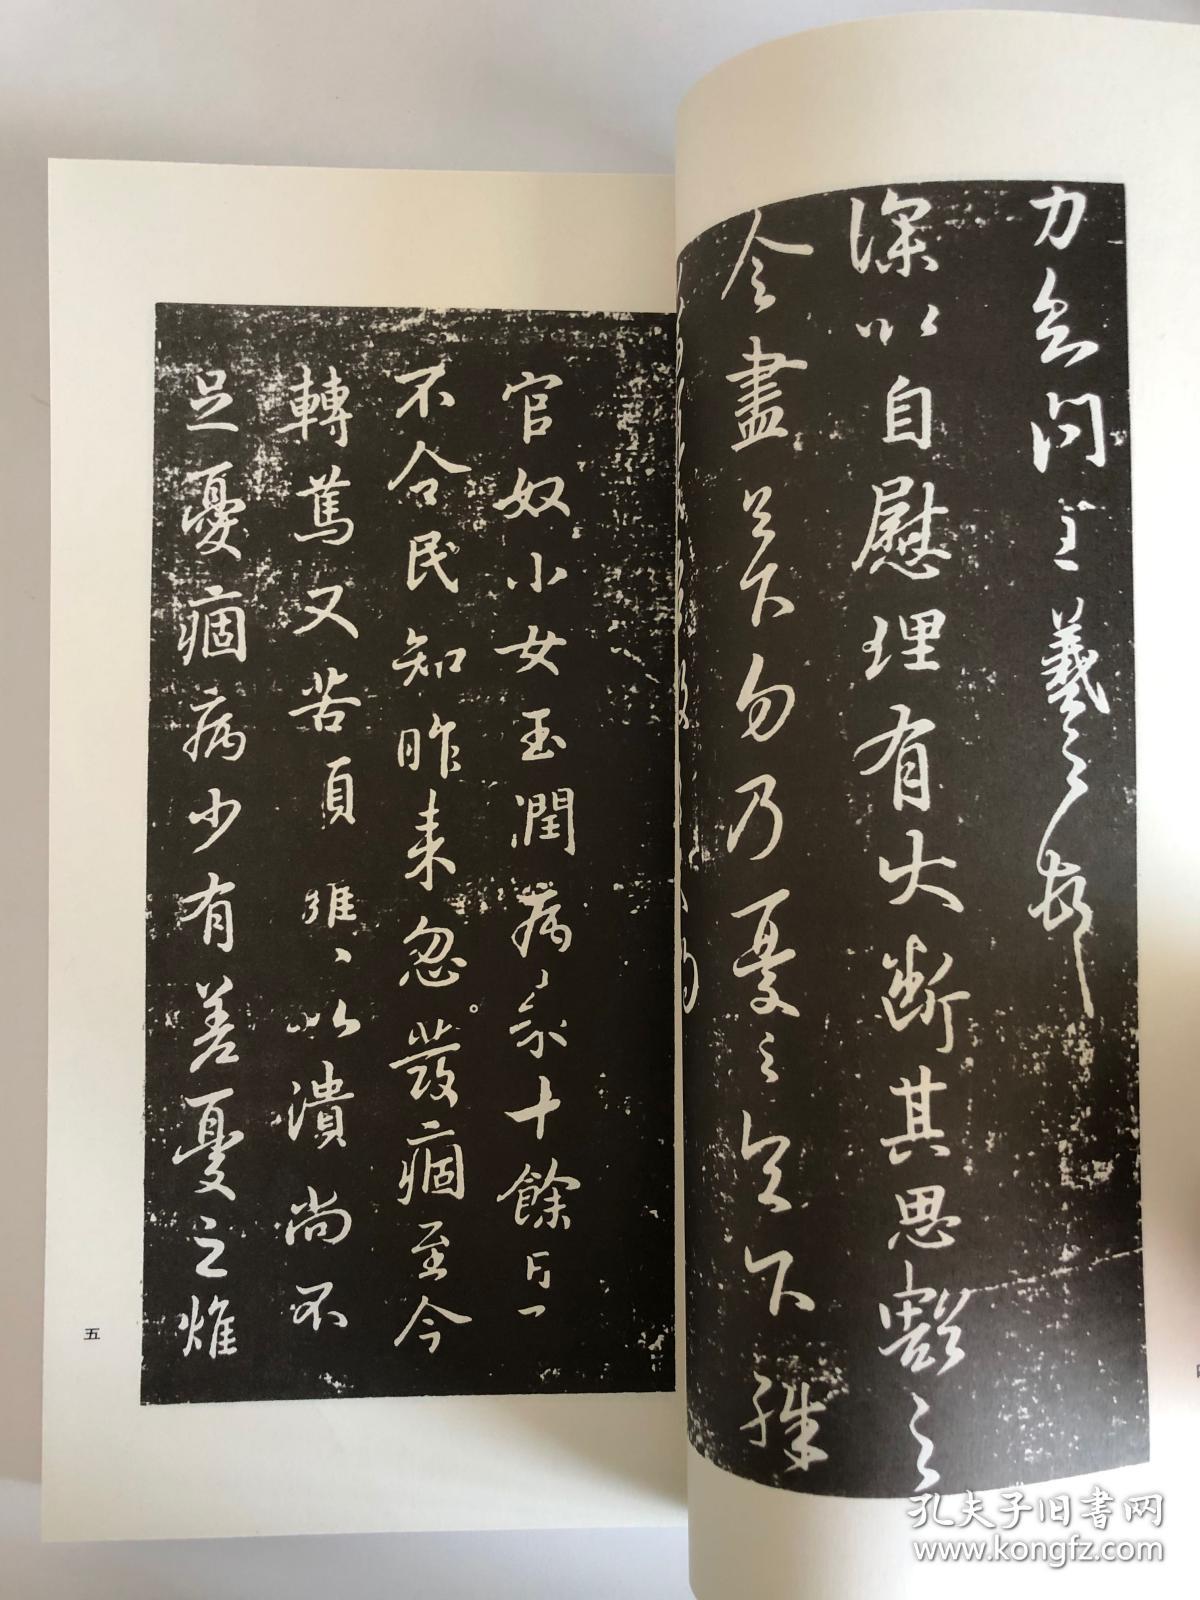 力不問王羲之頓
深以自慰理有大斷其思豁之
令盡足下勿乃憂之足下殊
官奴小女玉潤病來十餘日一
不令民知昨來忽發痼至今
轉篤又苦頭癰、以潰尚不
足憂痼病少有差憂之燋
五
孔夫子旧书网
www.kongfz.com